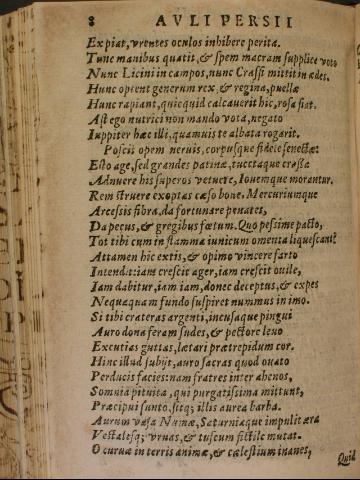 8 AVLI PERSII
Expiat, vrentes oculos inhibere perita.
Tunc manibus quatit, & spem macram supplice voto
Nunc Licini in campos, nunc Crassi mittit in ædes.
Hunc optent generum rex, & regina, puellæ
Hunc rapiant, quicquid calcauerit hic, rosa fiat.
Ast ego nutrici non mando vota, negato
Iuppiter hæc illi, quamuis te albata rogarit.
Poscis opem neruis, corpusque fidele senectæ:
Esto age, sed grandes patinæ, tucetaque crassa
Adnuere his superos vetuere, Iouemque morantur.
Rem struere exoptas cæso boue, Mercuriumque
Arcessis fibra, da fortunare penates,
Da pecus, & gregibus fœtum. Quo pessime pacto,
Tot tibi cum in flammæ iunicum omenta liquescant?
Attamen hic extis, & opimo vincere farto
Intendit: iam crescit ager, iam crescit ouile,
Iam dabitur, iam iam, donec deceptus, & expes
Nequaquam fundo suspiret nummus in imo.
Si tibi crateras argenti, incusaque pingui
Auro dona feram, sudes, & pectore leuo
Excutias guttas, lætari prætrepidum cor.
Hinc illud subijt, auro sacras quod ouato
Perducis facies: nam fratres inter ahenos,
Somnia pituita, qui purgatissima mittunt,
Præcipui sunto, sitq; illis aurea barba.
Aurum vasa Numæ, Saturniaque impulit æra
Vestalesq; vrnas, & tuscum fictile mutat.
O curuæ in terris animæ, & cælestium inanes,
Quid